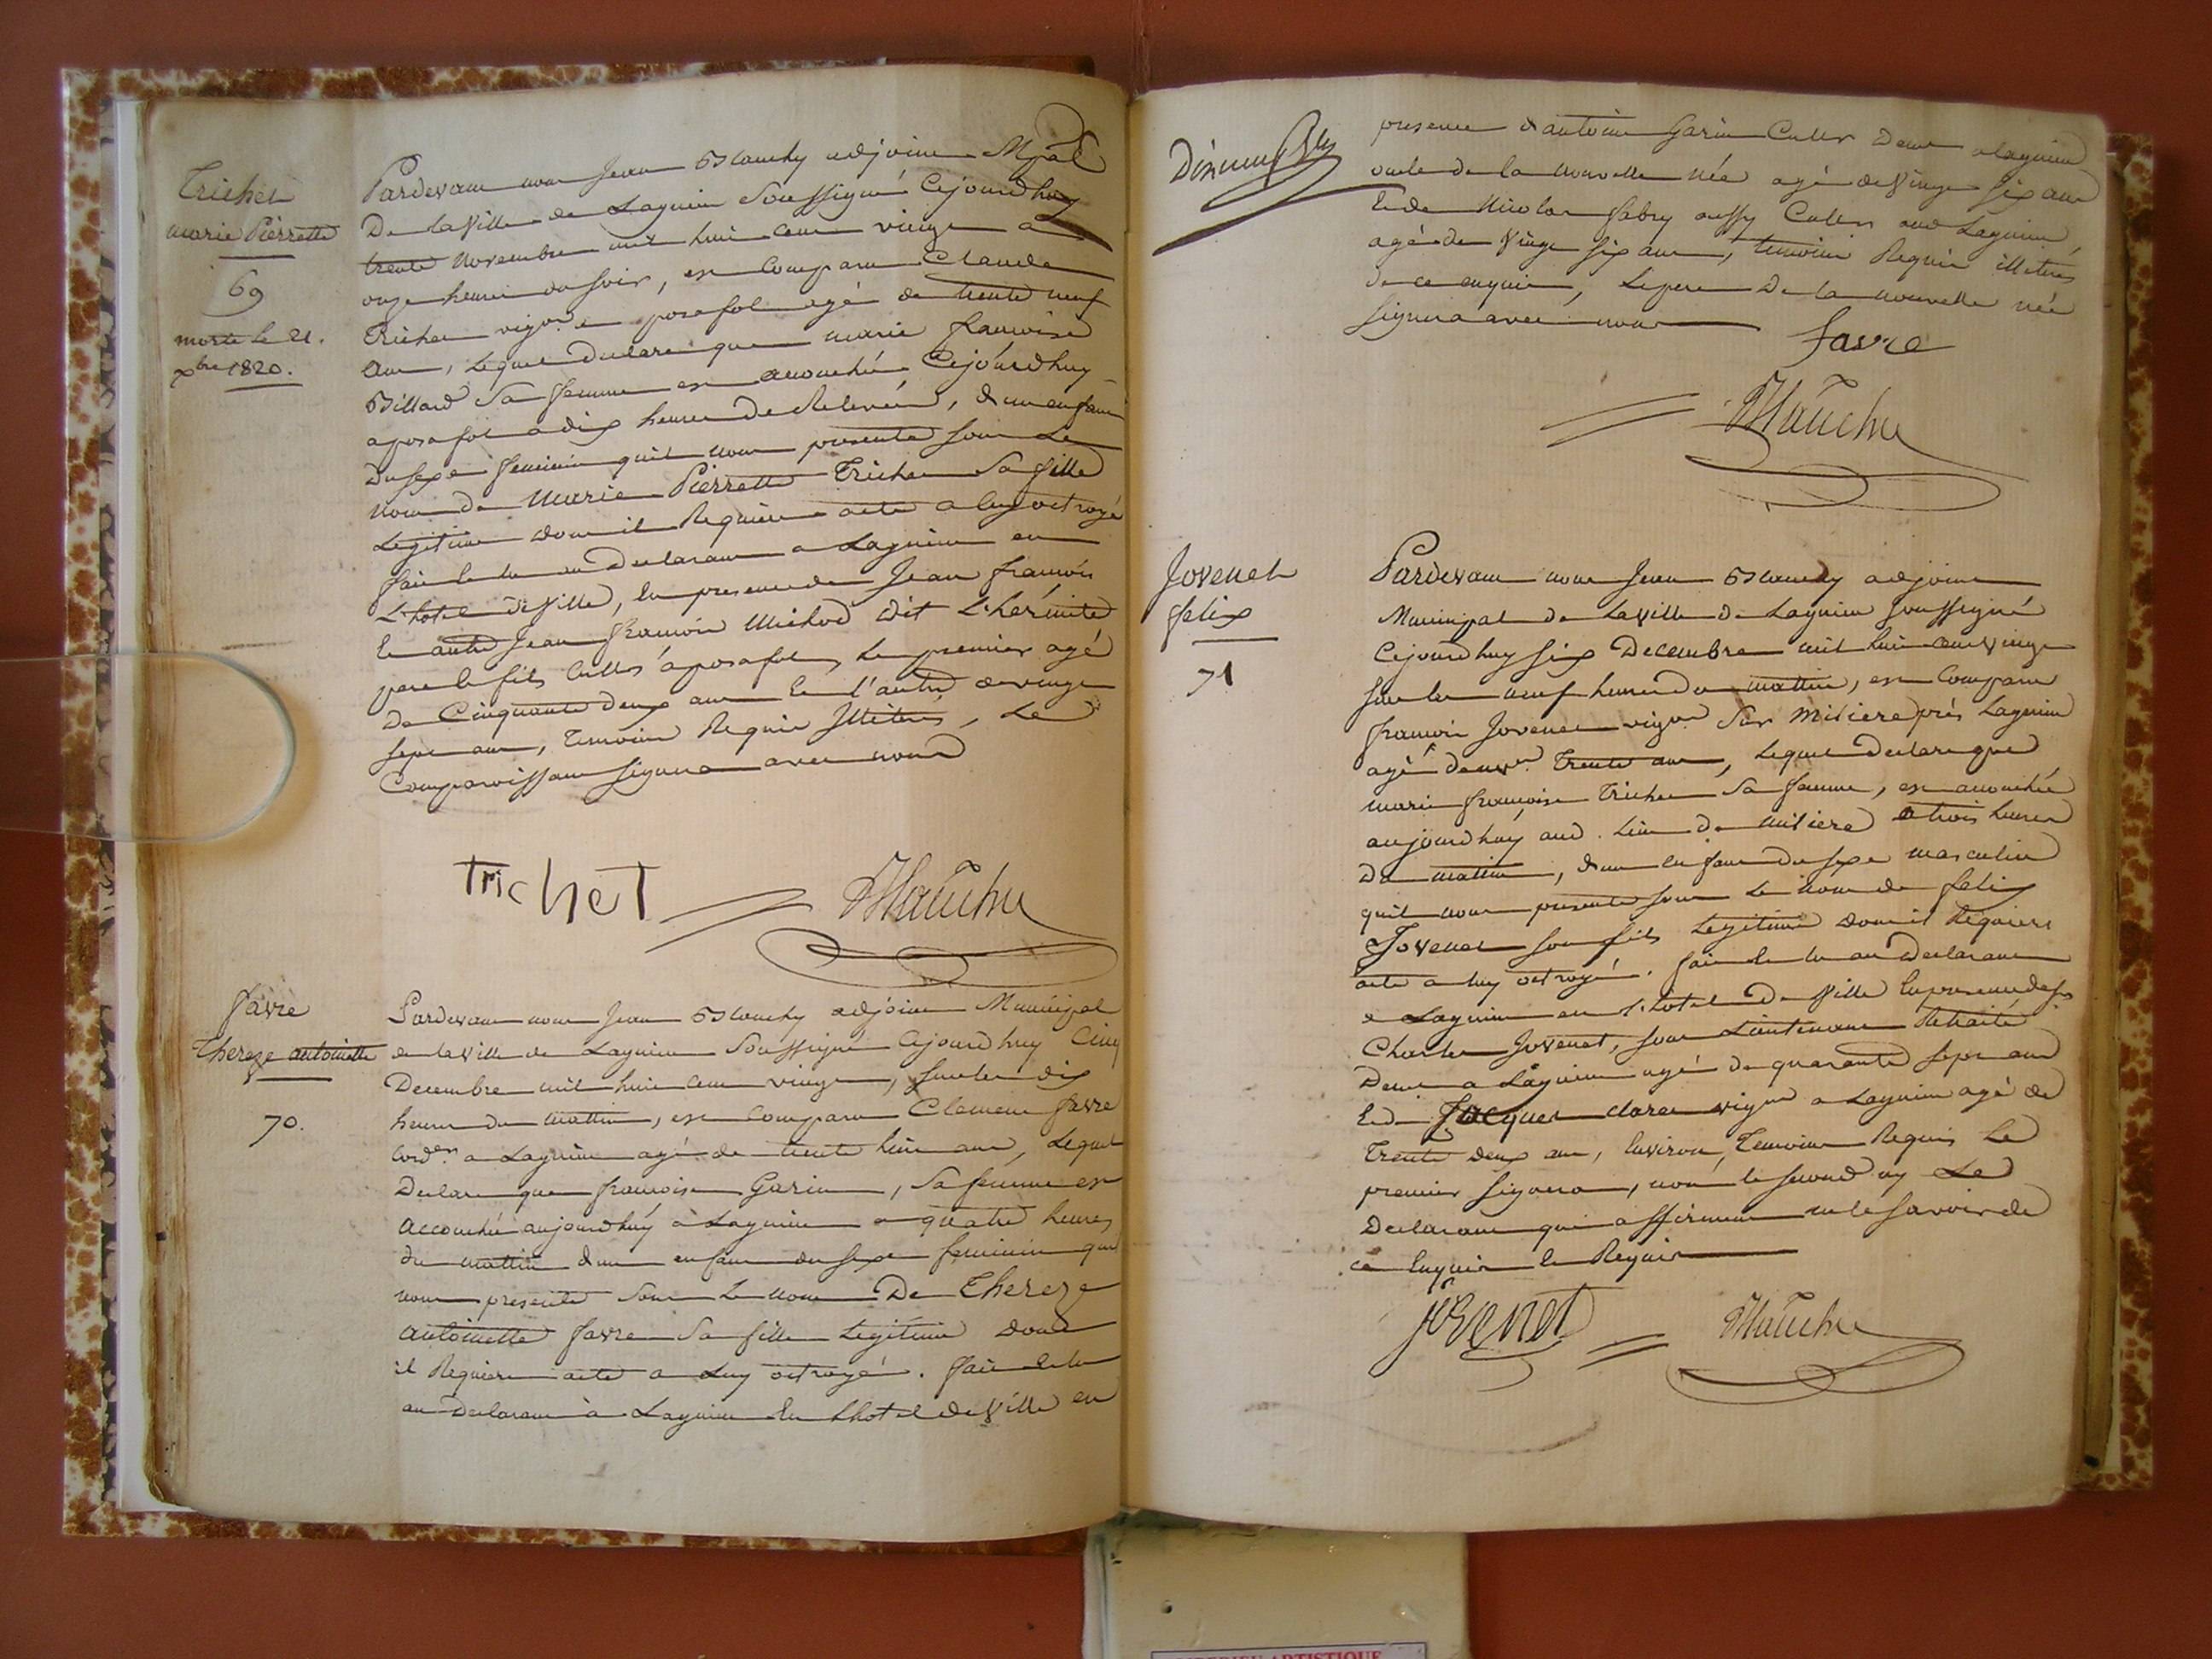 Trichet
marie Pierrette
69
morte le 21.
xbre 1820.
Pardevant nous Jean Blanchy adjoint Mpal
De la Ville de Lagnieu Soussigné Cejourdhuy
trente Novembre mil huit cent vingt a
onze heures du soir, est Comparu Claude
Trichet vigon a posafol agé de trente neuf
ans, Lequel Declare que marie francoise
Billard Sa femme est accouchée Cejourdhuy
a posafol a dix heures De Relevée, d'un enfant
Du sexe feminin quil nous presente sous Le
nom de Marie Pierrette Trichet Sa fille
Legitime dont il Requiere acte a luy octroyé
fait et lu au Declarant a Lagnieu en
L'hotel de Ville, En presence de Jean francois
et autre Jean francois Michod dit L'hérmite
pere et fils Cultrs a posafol, Le premier agé
de Cinquante deux ans et l'autre de vingt
sept ans, Temoins Requis Illiteres, Le
Comparoissant signera avec nous
Trichet
Blanchy
favre
Thereze antoinette
70.
Pardevant nous Jean Blanchy adjoint Municipal
de la Ville de Lagnieu Soussigné Cejourdhuy Cinq
Decembre mil huit cent vingt, sur les dix
heures du mattin, est Comparu Clement favre
Corder a Lagnieu agé de trente huit ans, Lequel
Declare que francoise Garin, Sa femme est
accouchée aujourdhuy à Lagnieu a quatre heures
du mattin d'un enfant du sexe feminin quil
nous presente sous Le nom De Thereze
antoinette favre Sa fille Legitime dont
il Requiere acte a Luy octroyé. fait et lu
au Declarant à Lagnieu En Lhotel de Ville en
presence d'antoine Garin Cultr Demt a Lagnieu
oncle de la nouvelle née agé de Vingt six ans
Et de Nicolas fabry aussy Cultr aud Lagnieu
agé de Vingt six ans, temoins Requis illiteres
de ce enquis, Le pere De la nouvelle née
signera avec nous
favre
Blanchy
Jovenet
felix
71
Pardevant nous Jean Blanchy adjoint
Municipal de la Ville de Lagnieu soussigné
Cejourdhuy six Decembre mil huit cent Vingt
sur les neuf heures du mattin, est Comparu
francois Jovenet vigon Sur Miliere près Lagnieu
agé d'envn Trente ans, Lequel Declare que
marie francoise Trichet Sa femme, est accouchée
aujourdhuy aud. Lieu de Miliere a trois heures
Du mattin, d'un enfant du sexe masculin
quil nous presente sous Le Nom de felix
Jovenet son fils Legitime dont il Requiere
acte a luy octroyé. fait et lu au Declarant
a Lagnieu en L'hotel De Ville En presence de Sr
Charles Jovenet, sous Lieutenant Retraité
Demt a Lagnieu agé de quarante sept ans
Et de Jacques vigon a Lagnieu agé de
Trente deux ans, Environ, Temoins Requis Le
premier signera, non le second ny Le
Declarant qui affirment ne le savoir de
ce Enquis et Requis
Jovenet
Blanchy